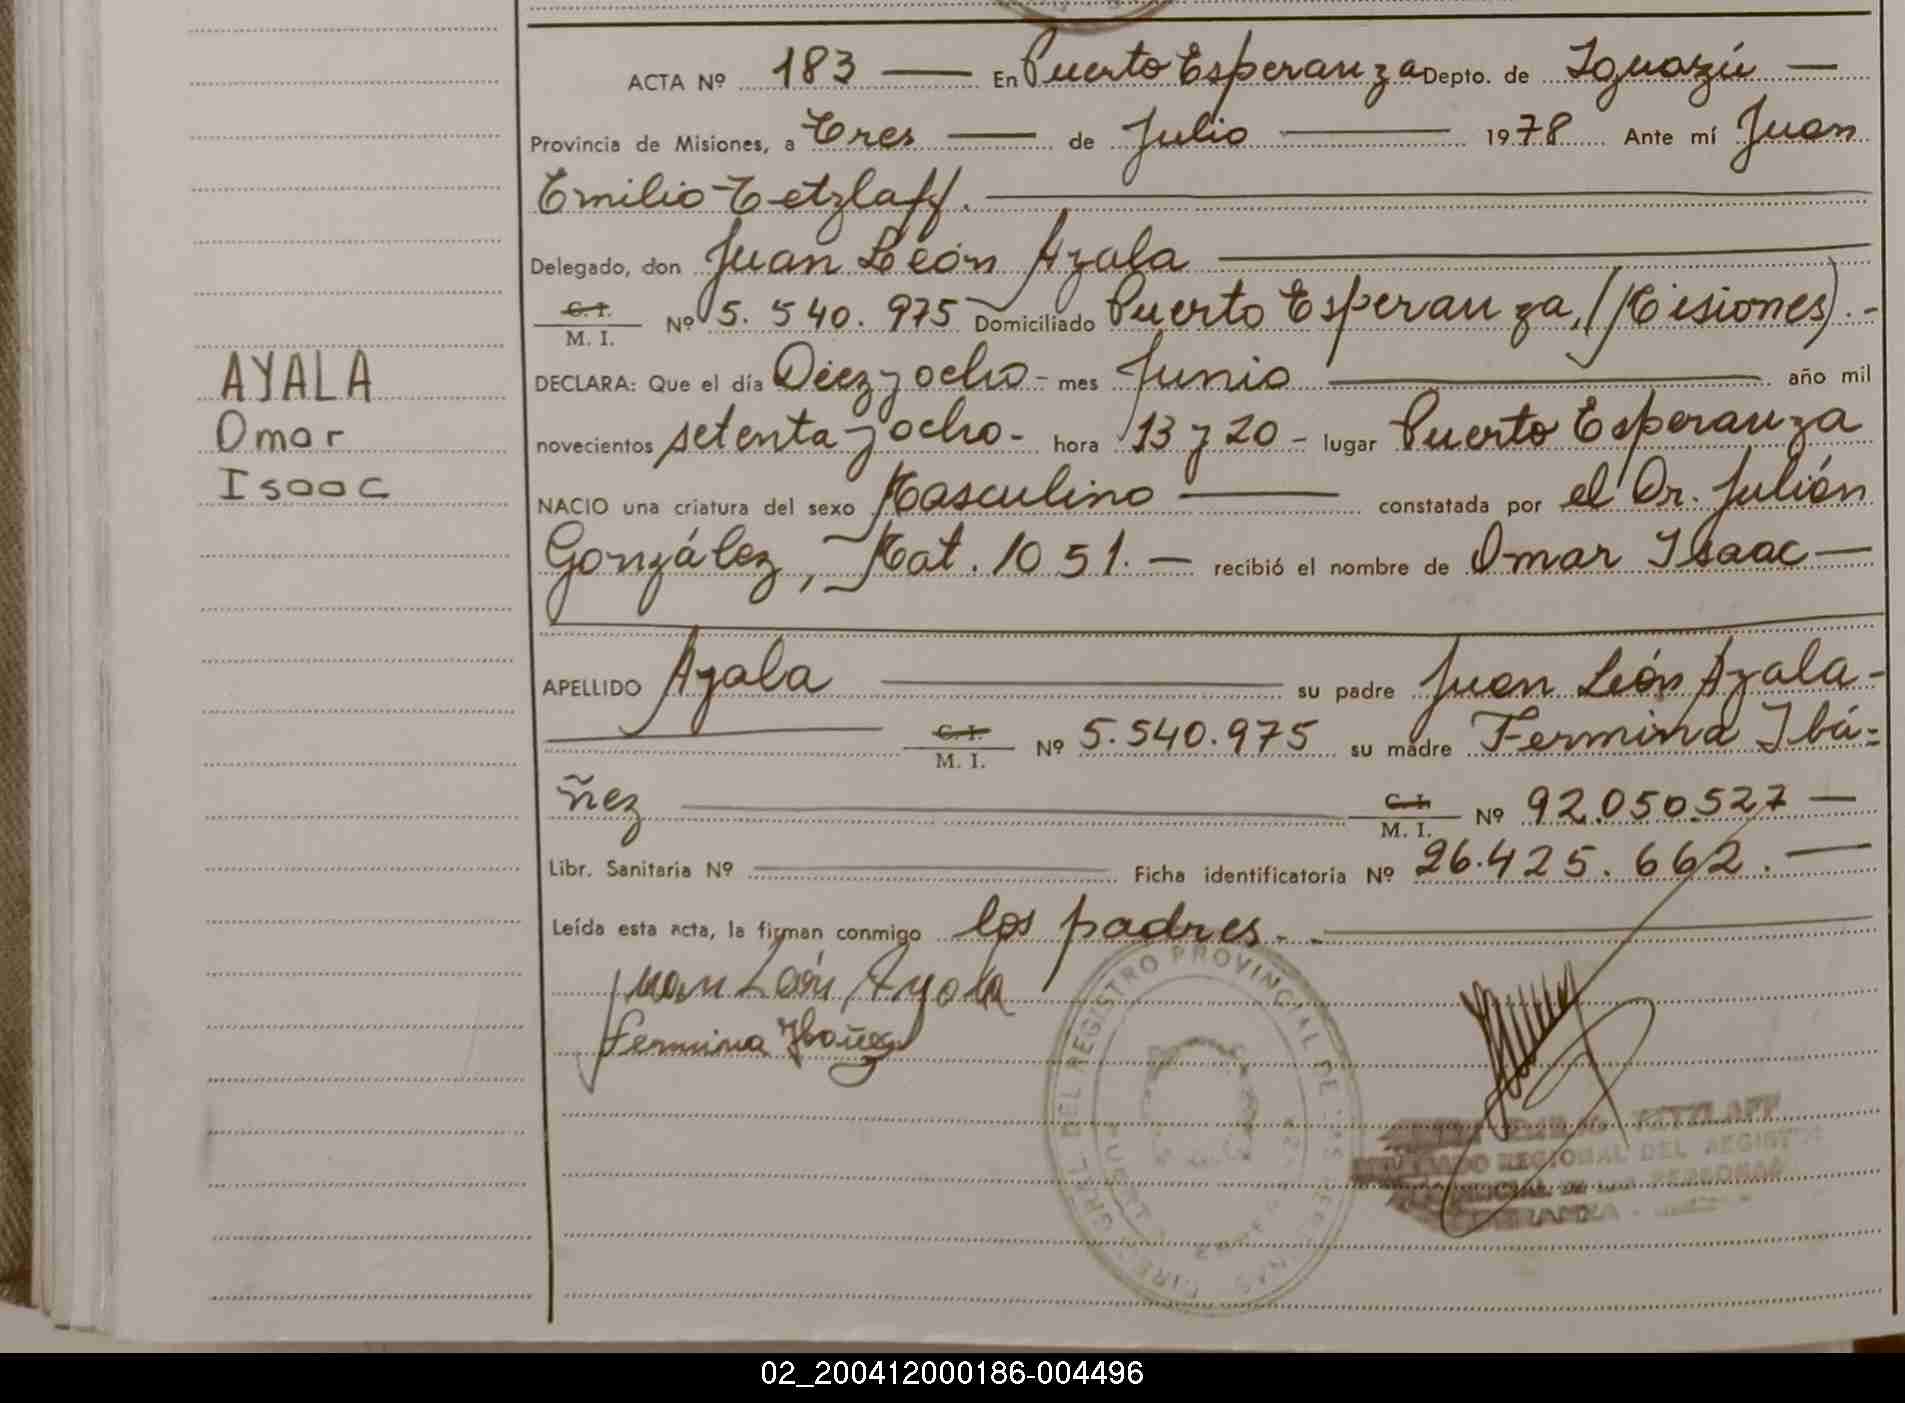 ACTA Nº 183 — En Puerto Esperanza Depto. de Iguazú —
Provincia de Misiones, a Tres — de Julio — 1978 Ante mí Juan
Emilio Tetzlaff.
Delegado, don Juan León Ayala
C. I. / M. I. Nº 5.540.975 Domiciliado Puerto Esperanza, (Misiones).-
AYALA
Omar
Isaac
DECLARA: Que el día Diez y ocho - mes Junio — año mil
novecientos setenta y ocho - hora 13 y 20 - lugar Puerto Esperanza
NACIO una criatura del sexo Masculino — constatada por el Dr. Julián
González, Mat. 1051. — recibió el nombre de Omar Isaac —
APELLIDO Ayala — su padre Juan León Ayala -
C. I. / M. I. Nº 5.540.975 su madre Fermina Ibá=
ñez — C. I. / M. I. Nº 92.050.527 —
Libr. Sanitaria Nº — Ficha identificatoria Nº 26.425.662. —
Leída esta acta, la firman conmigo los padres. -
Juan León Ayala
Fermina Ibañez
DEL REGISTRO PROVINCIAL DE
TETZLAFF
REGIONAL DEL
02_200412000186-004496